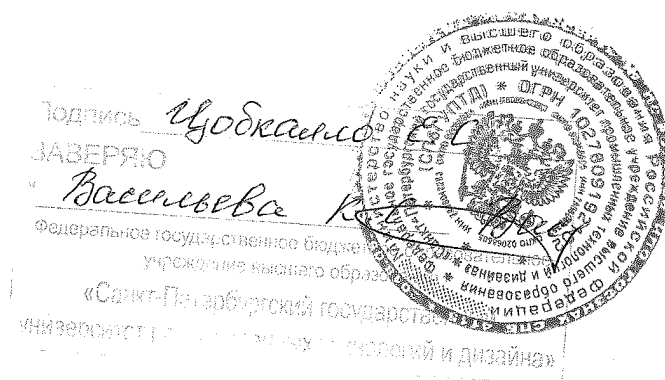 Подпись Цобкалло Е.С.
ЗАВЕРЯЮ
Васильева К.С.
Федеральное государственное бюджетное образовательное
учреждение высшего образования
«Санкт-Петербургский государственный
университет промышленных технологий и дизайна»
Министерство науки и высшего образования Российской Федерации
федеральное государственное бюджетное образовательное учреждение высшего образования
Санкт-Петербургский государственный университет промышленных технологий и дизайна
(СПбГУПТД) * ОГРН 1027809192